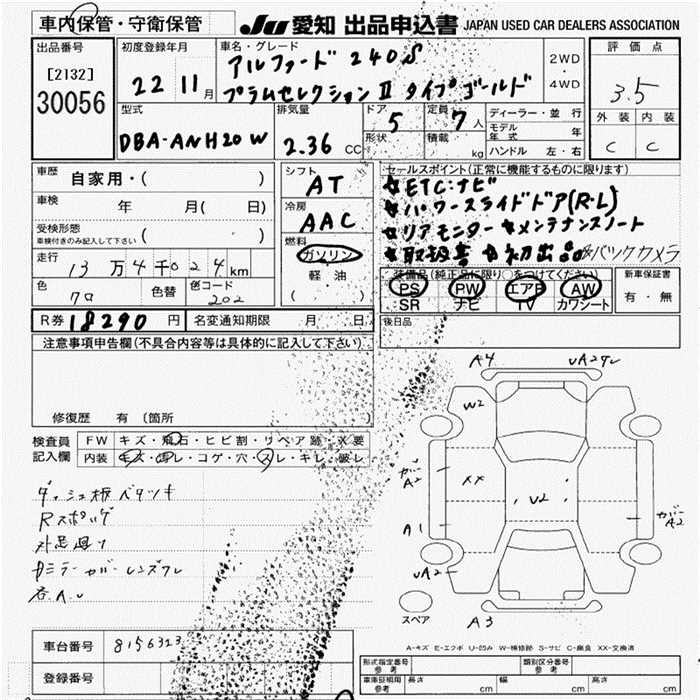 車内保管・守衛保管
JU 愛知 出品申込書 JAPAN USED CAR DEALERS ASSOCIATION
出品番号
[2132]
30056
初度登録年月
22 11月
車名・グレード
アルファード 240S
プラムセレクションⅡ タイプゴールド
2WD
・
4WD
評価点
3.5
外装 内装
C C
型式
DBA-ANH20W
排気量
2.36 CC
ドア
5
形状
定員
7人
積載 kg
ディーラー・並行
モデル年式 年
ハンドル 左・右
車歴
自家用・( )
車検 年 月( 日)
受検形態
車検付きのみ記入して下さい ( )
走行
13万4千024km
色
クロ
色替
色コード
202
シフト
AT
冷房
AAC
燃料
ガソリン
軽・油
( )
セールスポイント(正常に機能するものに限ります)
☆ETC:ナビ
☆パワースライドドア(R・L)
☆リアモニター ☆メンテナンスノート
☆取扱書 ☆初出品 ☆バックカメラ
装備品(純正品に限り○をつけてください)
PS PW エアB AW
SR ナビ TV カワシート
新車保証書
有・無
R券 18290円
名変通知期限 月 日
後日品
注意事項申告欄(不具合内容等は具体的に記入して下さい)
修復歴 有 〔箇所
検査員記入欄
FW キズ・飛石・ヒビ割・リペア跡・X要
内装 キズ・汚レ・コゲ・穴・スレ・キレ・破レ
ダッシュ板ベタツキ
外足廻り
A4
W2
XX
A2
A1
UA2
V2
A2
A3
スペア
A-キズ E-エクボ U-凹み W-補修跡 S-サビ C-腐食 XX-交換済
車台番号 8156323
登録番号
型式指定番号
参考
類別区分番号
参考
車庫証明用
参考
長さ cm 幅 cm 高さ cm